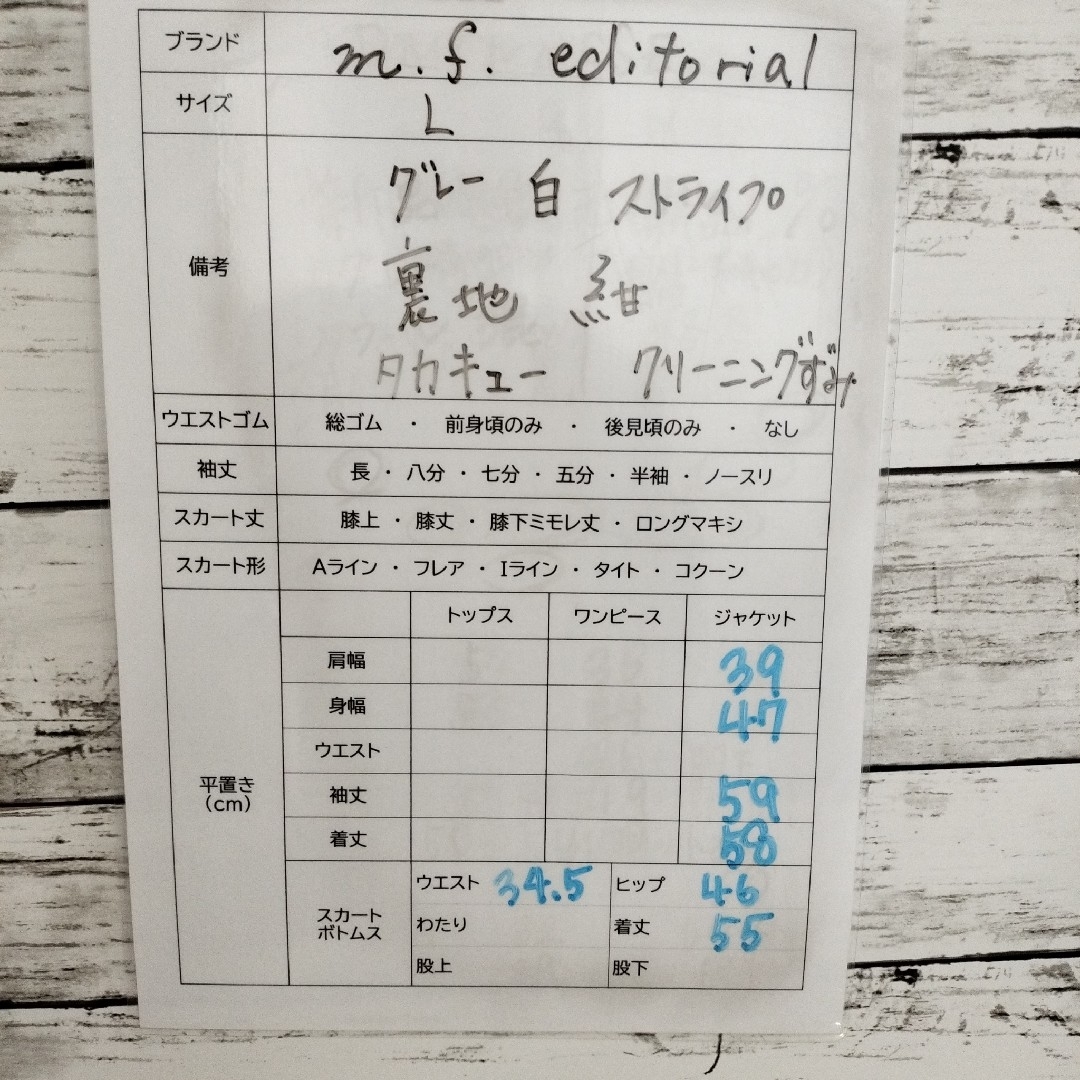 ブランド m.f. editorial
サイズ L
備考
グレー 白 ストライプ
裏地 紺
タカキュー クリーニングずみ
ウエストゴム 総ゴム ・ 前身頃のみ ・ 後見頃のみ ・ なし
袖丈 長 ・ 八分 ・ 七分 ・ 五分 ・ 半袖 ・ ノースリ
スカート丈 膝上 ・ 膝丈 ・ 膝下ミモレ丈 ・ ロングマキシ
スカート形 Aライン ・ フレア ・ Iライン ・ タイト ・ コクーン
平置き
(cm)
トップス ワンピース ジャケット
肩幅 39
身幅 47
ウエスト
袖丈 59
着丈 58
スカート
ボトムス
ウエスト 34.5 ヒップ 46
わたり 着丈 55
股上 股下